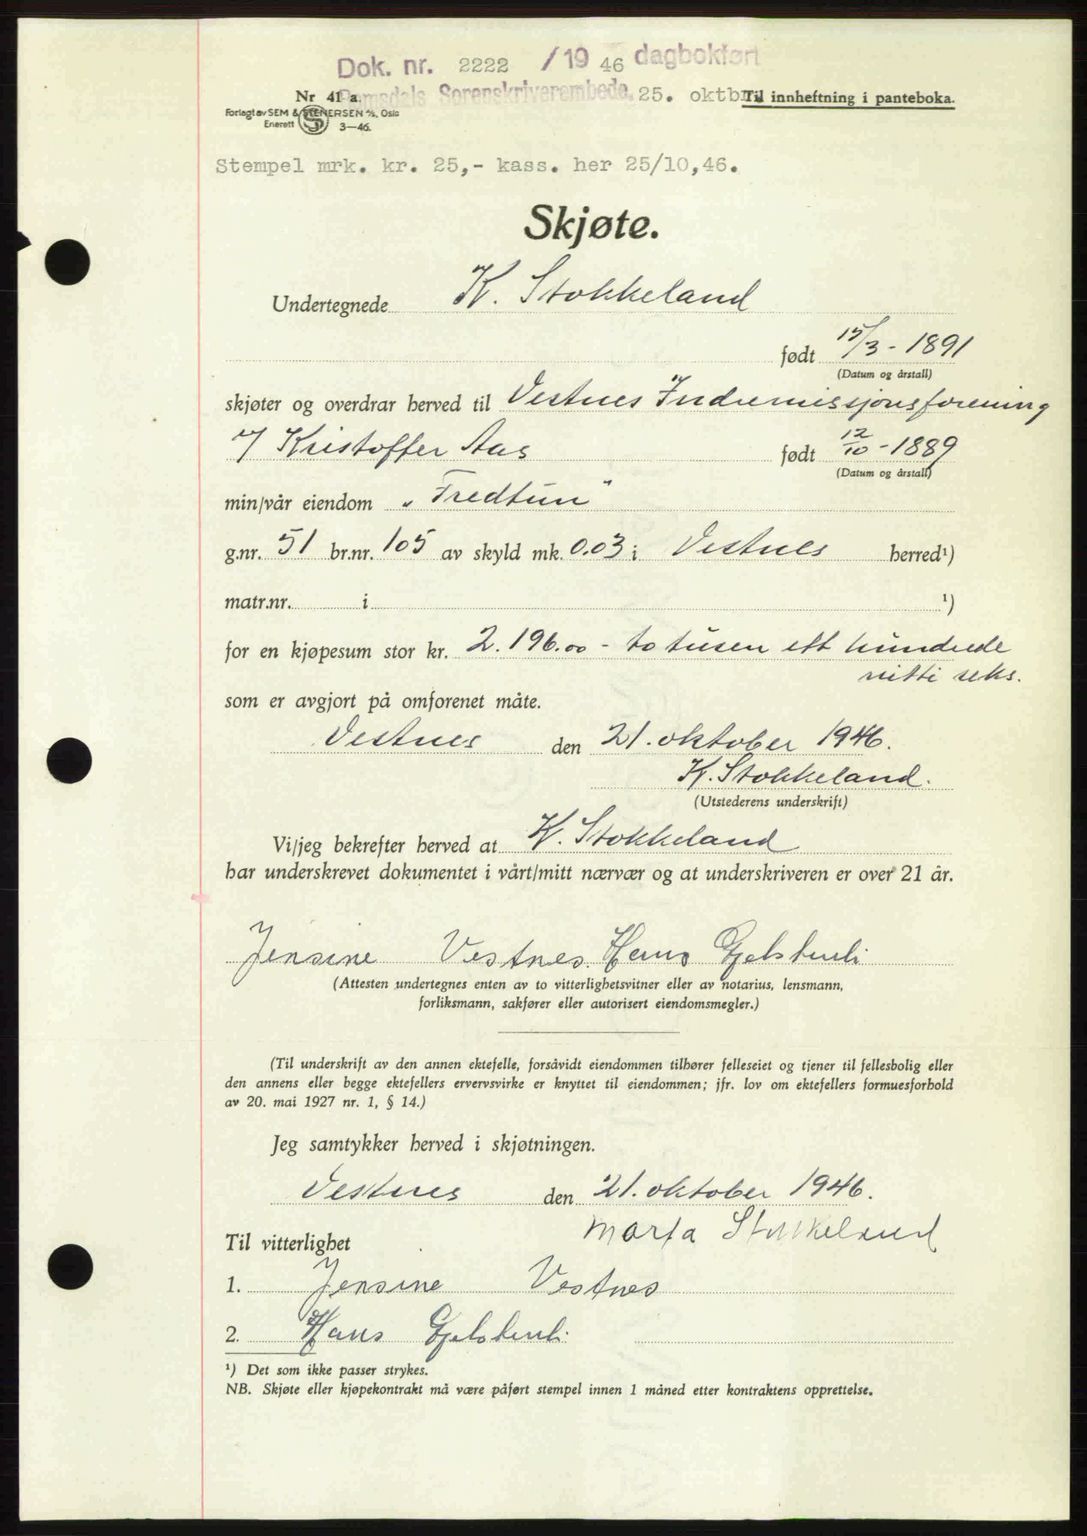 Dok. nr. 2222 /19 46 dagbokført
Nr 41 a. Romsdals Sorenskriverembede. 25. oktbr. Til innheftning i panteboka.
Forlagt av SEM & STENERSEN A/S, Oslo
Enerett S 3—46.
Stempel mrk. kr. 25,- kass. her 25/10,46.
Skjøte.
Undertegnede K. Stokkeland
født 15/3 - 1891
(Datum og årstall)
skjøter og overdrar herved til Vestnes Indremissjonsforening
v/ Kristoffer Aas født 12/10 - 1889
(Datum og årstall)
min/vår eiendom „Fredtun"
g.nr. 51 br.nr. 105 av skyld mk. 0.03 i Vestnes herred¹)
matr.nr. i ¹)
for en kjøpesum stor kr. 2.196.00 - to tusen ett hundrede
nitti seks.
som er avgjort på omforenet måte.
Vestnes den 21. oktober 1946.
K. Stokkeland.
(Utstederens underskrift)
Vi/jeg bekrefter herved at K. Stokkeland
har underskrevet dokumentet i vårt/mitt nærvær og at underskriveren er over 21 år.
Jensine Vestnes. Hans
(Attesten undertegnes enten av to vitterlighetsvitner eller av notarius, lensmann,
forliksmann, sakfører eller autorisert eiendomsmegler.)
(Til underskrift av den annen ektefelle, forsåvidt eiendommen tilhører felleseiet og tjener til fellesbolig eller
den annens eller begge ektefellers ervervsvirke er knyttet til eiendommen; jfr. lov om ektefellers formuesforhold
av 20. mai 1927 nr. 1, § 14.)
Jeg samtykker herved i skjøtningen.
Vestnes den 21. oktober 1946.
Marta Stokkeland
Til vitterlighet
1. Jensine Vestnes
2. Hans
¹) Det som ikke passer strykes.
NB. Skjøte eller kjøpekontrakt må være påført stempel innen 1 måned etter kontraktens opprettelse.